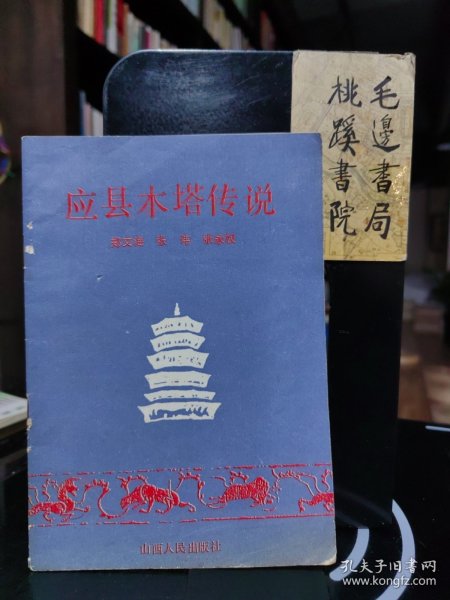 应县木塔传说
山西人民出版社
毛邊書局
桃蹊書院
孔夫子旧书网
www.kongfz.com